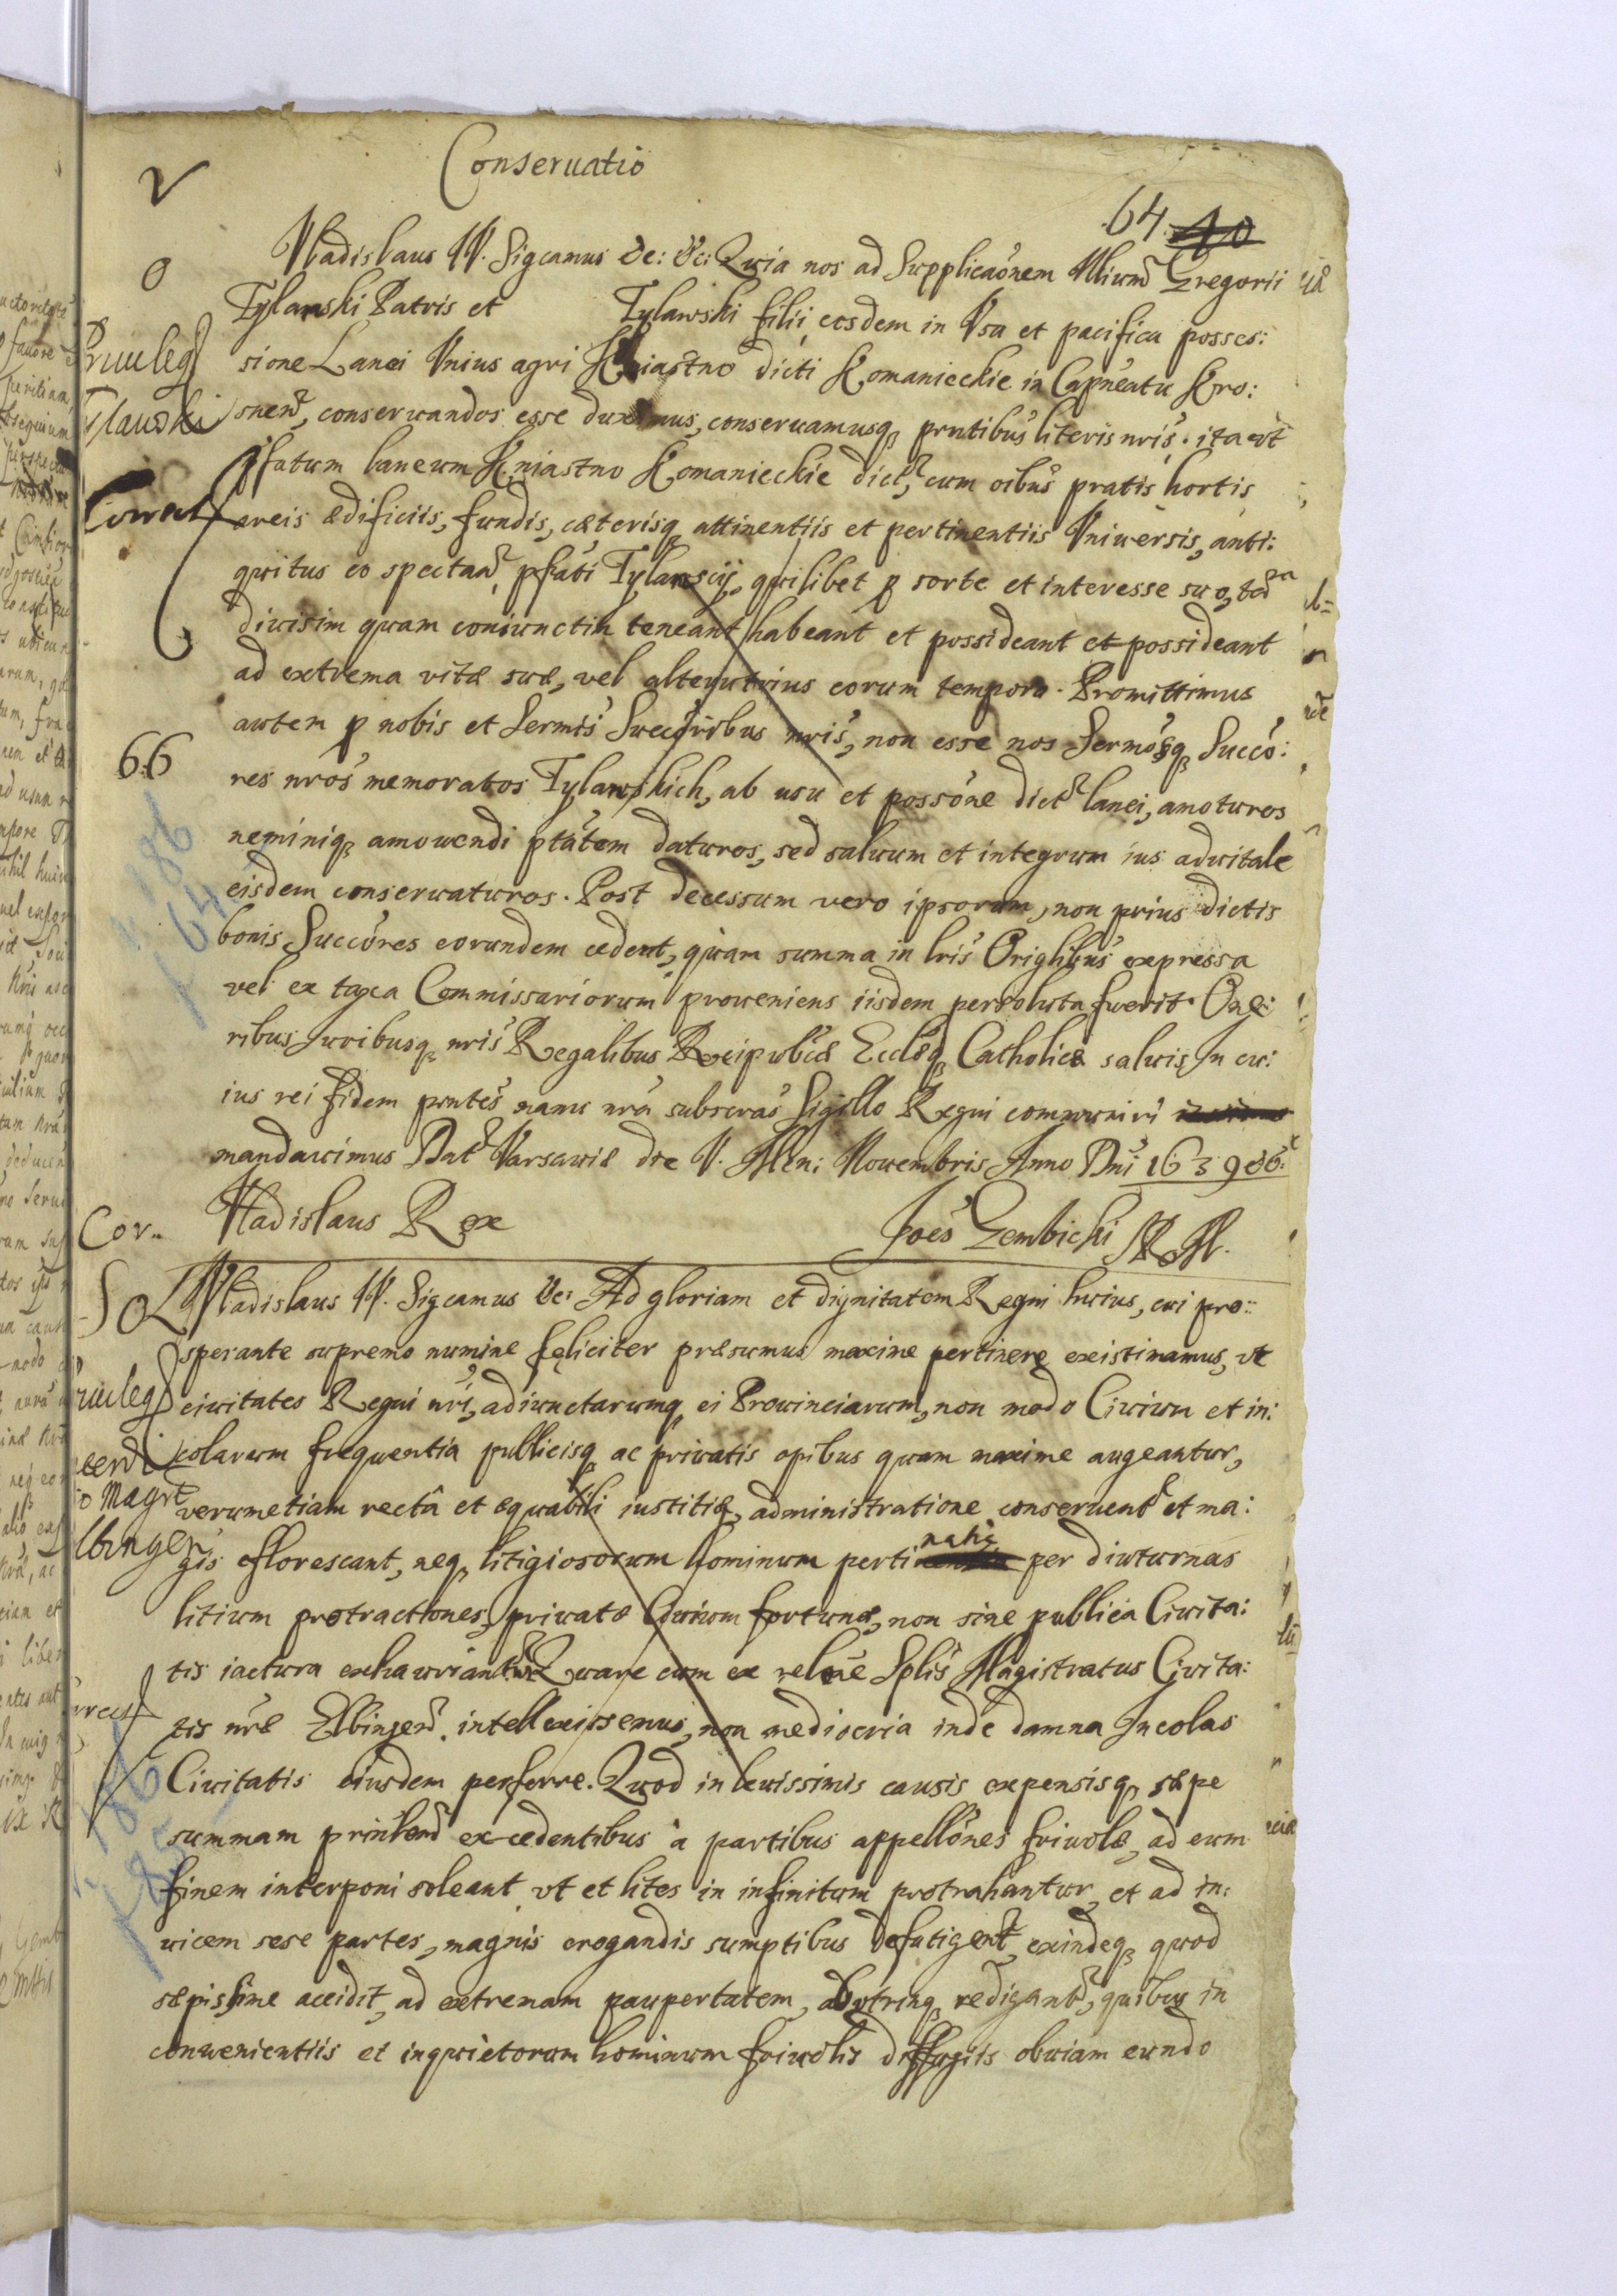 Conseruatio
64. 40
Vladislaus IV. Sigcamus &c: &c: Quia nos ad Supplicaõnem Mliwm Gregorii
Tylawski Patris et Tylawski filii, eosdem in Vsu et pacifica posses:
sione Lanei Vnius agri Kniastwo dicti Komanieckie in Capneatu Kro:
snen, conseruandos esse duximus, conseruamusq prntibus literis nris. ita vt
pfatum laneum Kniastwo Komanieckie dict, cum oibus pratis hortis
areis ædificiis, fundis, cæterisq attinentiis et pertinentiis Vniuersis, anti:
quitus eo spectan, pfati Tylawscij, quilibet p sorte et interesse suo, tam
diuisim quam coniunctim teneant habeant et possideant et possideant
ad extrema vitæ suæ, vel alterutrius eorum tempora. Promittimus
autem p nobis et Sermis Succoribus nris, non esse nos Sermosq Succo:
res nros memoratos Tylawskich, ab usu et possõne dict lanei, amoturos
neminiq amouendi ptatem daturos, sed saluum et integrum ius aduitale
eisdem conseruaturos. Post decessum vero ipsorum, non prius dictis
bonis Succores eorundem cedent, quam summa in lris Origlibus expressa
vel ex taxa Commissariorum proueniens iisdem persoluta fuerit. One:
ribus Iuribusq nris Regalibus Reipublicæ Ecclæq Catholicæ saluis. In cu:
ius rei fidem pntes manu nra subscras Sigillo Regni communiri
mandauimus Dat Varsauiæ die V. Men: Nouembris Anno Dni 1639
Vladislaus Rex
Joes Gembicki
Vladislaus IV. Sigcamus &c: Ad gloriam et dignitatem Regni huius, cui pro:
sperante supremo numine feliciter præsumus maxime pertinere existimamus, vt
ciuitates Regni nri, adiunctarumq ei Prouinciarum, non modo Ciuium et in:
colarum frequentia publicisq ac priuatis opibus quam maxime augeantur,
verumetiam rectâ et æquabili iustitiæ administratione conseruent et ma:
gis eflorescant, neq litigiosorum hominum pertinatia per diuturnas
litium protractiones, priuatæ Ciuium fortunæ, non sine publica Ciuita:
tis iactura exhauriantur. Quare cum ex relõne Splis Magistratus Ciuita:
tis nræ Elbingen. intellexissemus, non mediocria inde damna Incolas
Ciuitatis eiusdem perferre. Quod in leuissimis causis expensisq sæpe
summam excedentibus à partibus appellõnes friuolæ, ad eum
finem interponi soleant, vt et lites in infinitum protrahantur, et ad in:
uicem sese partes, magnis erogandis sumptibus defatigent, exindeq quod
sæpissime accidit, ad extremam paupertatem, ab vtrinq redigant, quibus in
conuenientiis et inquietorum hominum friuolis diffugiis obuiam eundo
66
Cor..